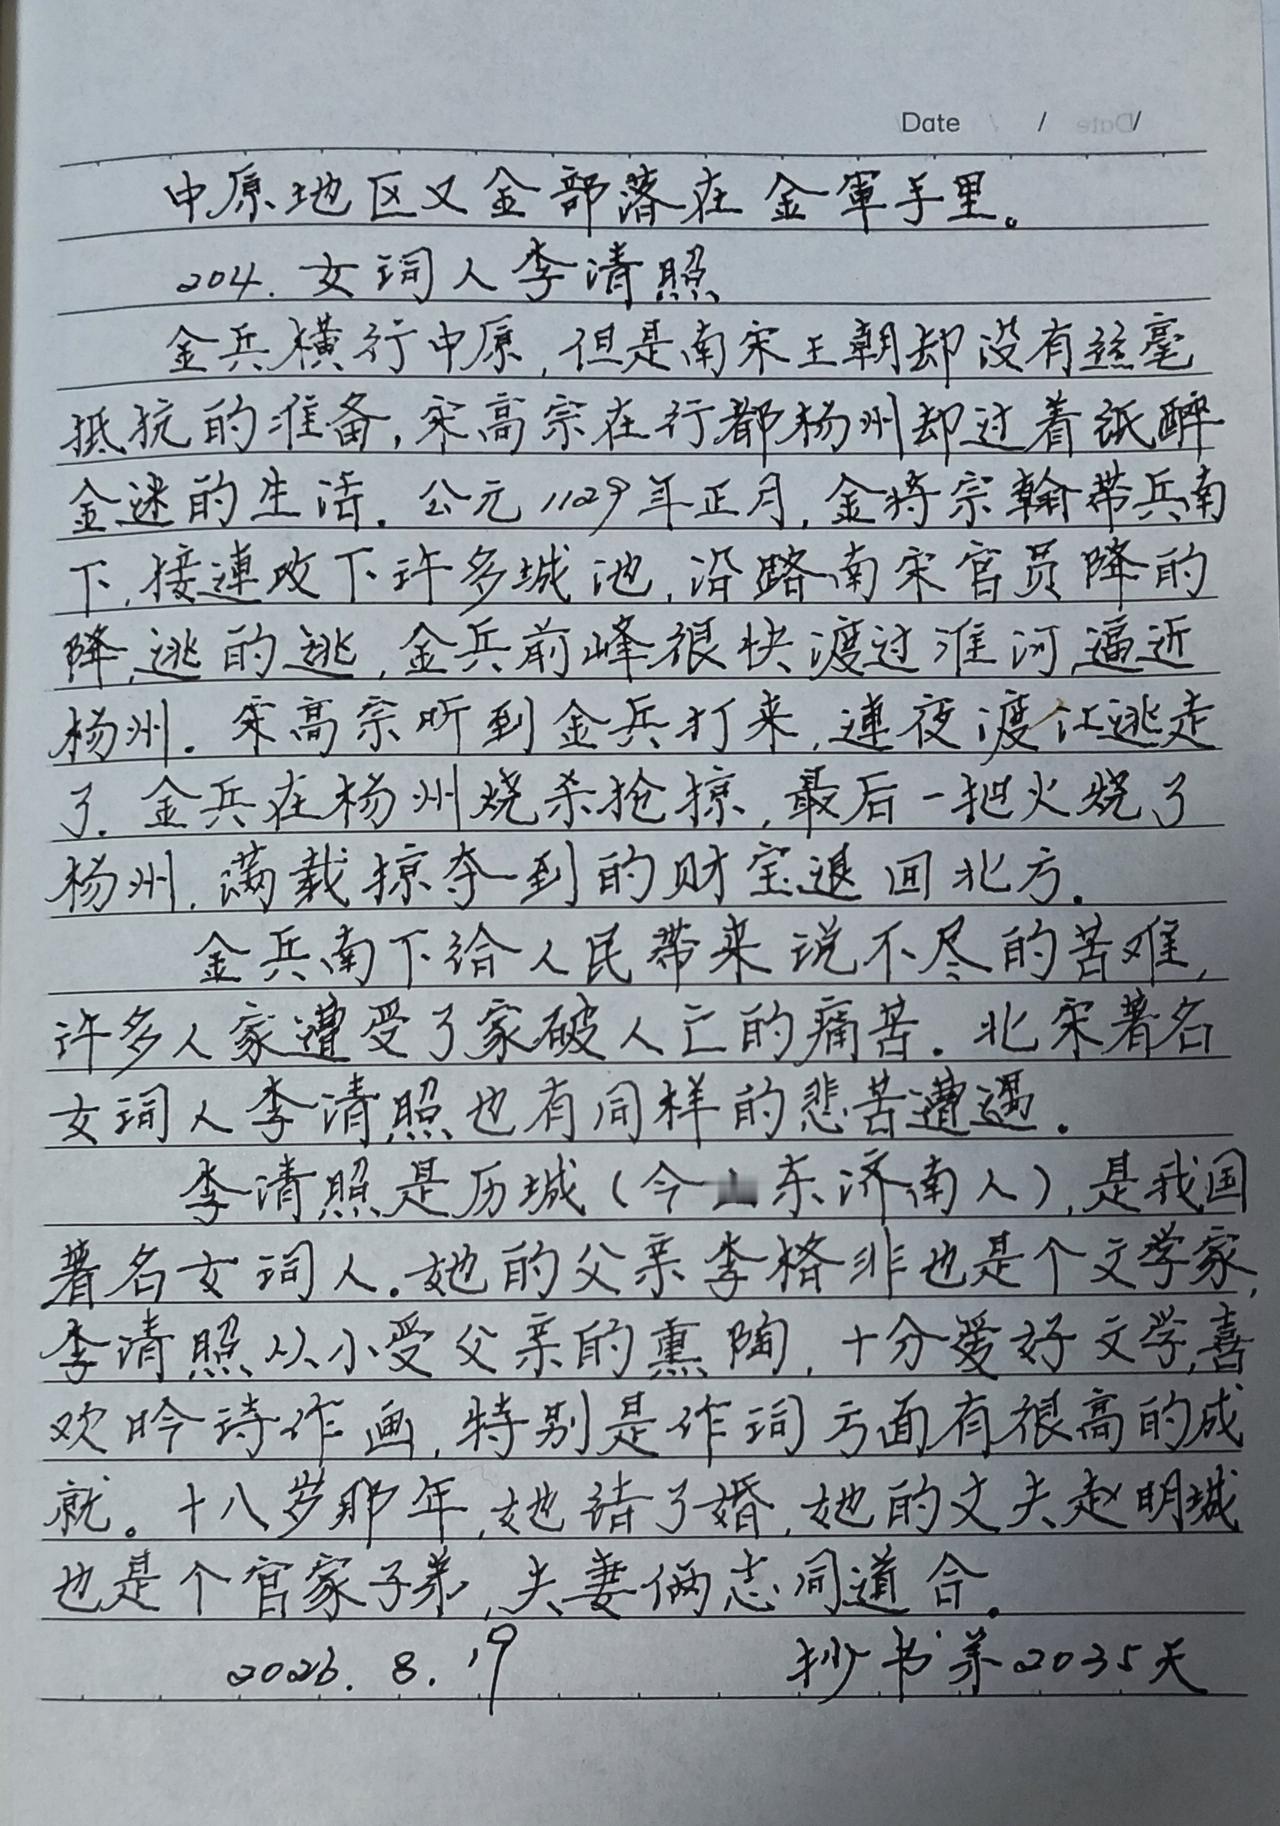 Date / /
中原地区又全部落在金軍手里。
204. 女词人李清照
金兵横行中原,但是南宋王朝却没有丝毫
抵抗的准备,宋高宗在行都杨州却过着纸醉
金迷的生活。公元1129年正月,金将宗翰带兵南
下,接連攻下许多城池,沿路南宋官员降的
降,逃的逃,金兵前峰很快渡过淮河,逼近
杨州。宋高宗听到金兵打来,連夜渡江逃走
了。金兵在杨州烧杀抢掠,最后一把火烧了
杨州,满载掠夺到的财宝退回北方。
金兵南下给人民带来说不尽的苦难,
许多人家遭受了家破人亡的痛苦。北宋著名
女词人李清照也有同样的悲苦遭遇。
李清照是历城(今山东济南人),是我国
著名女词人。她的父亲李格非也是个文学家,
李清照从小受父亲的熏陶,十分爱好文学,喜
欢吟诗作画,特别是作词方面有很高的成
就。十八岁那年,她结了婚,她的丈夫赵明城
也是个官家子弟,夫妻俩志同道合。
2026.8.19 抄书第2035天